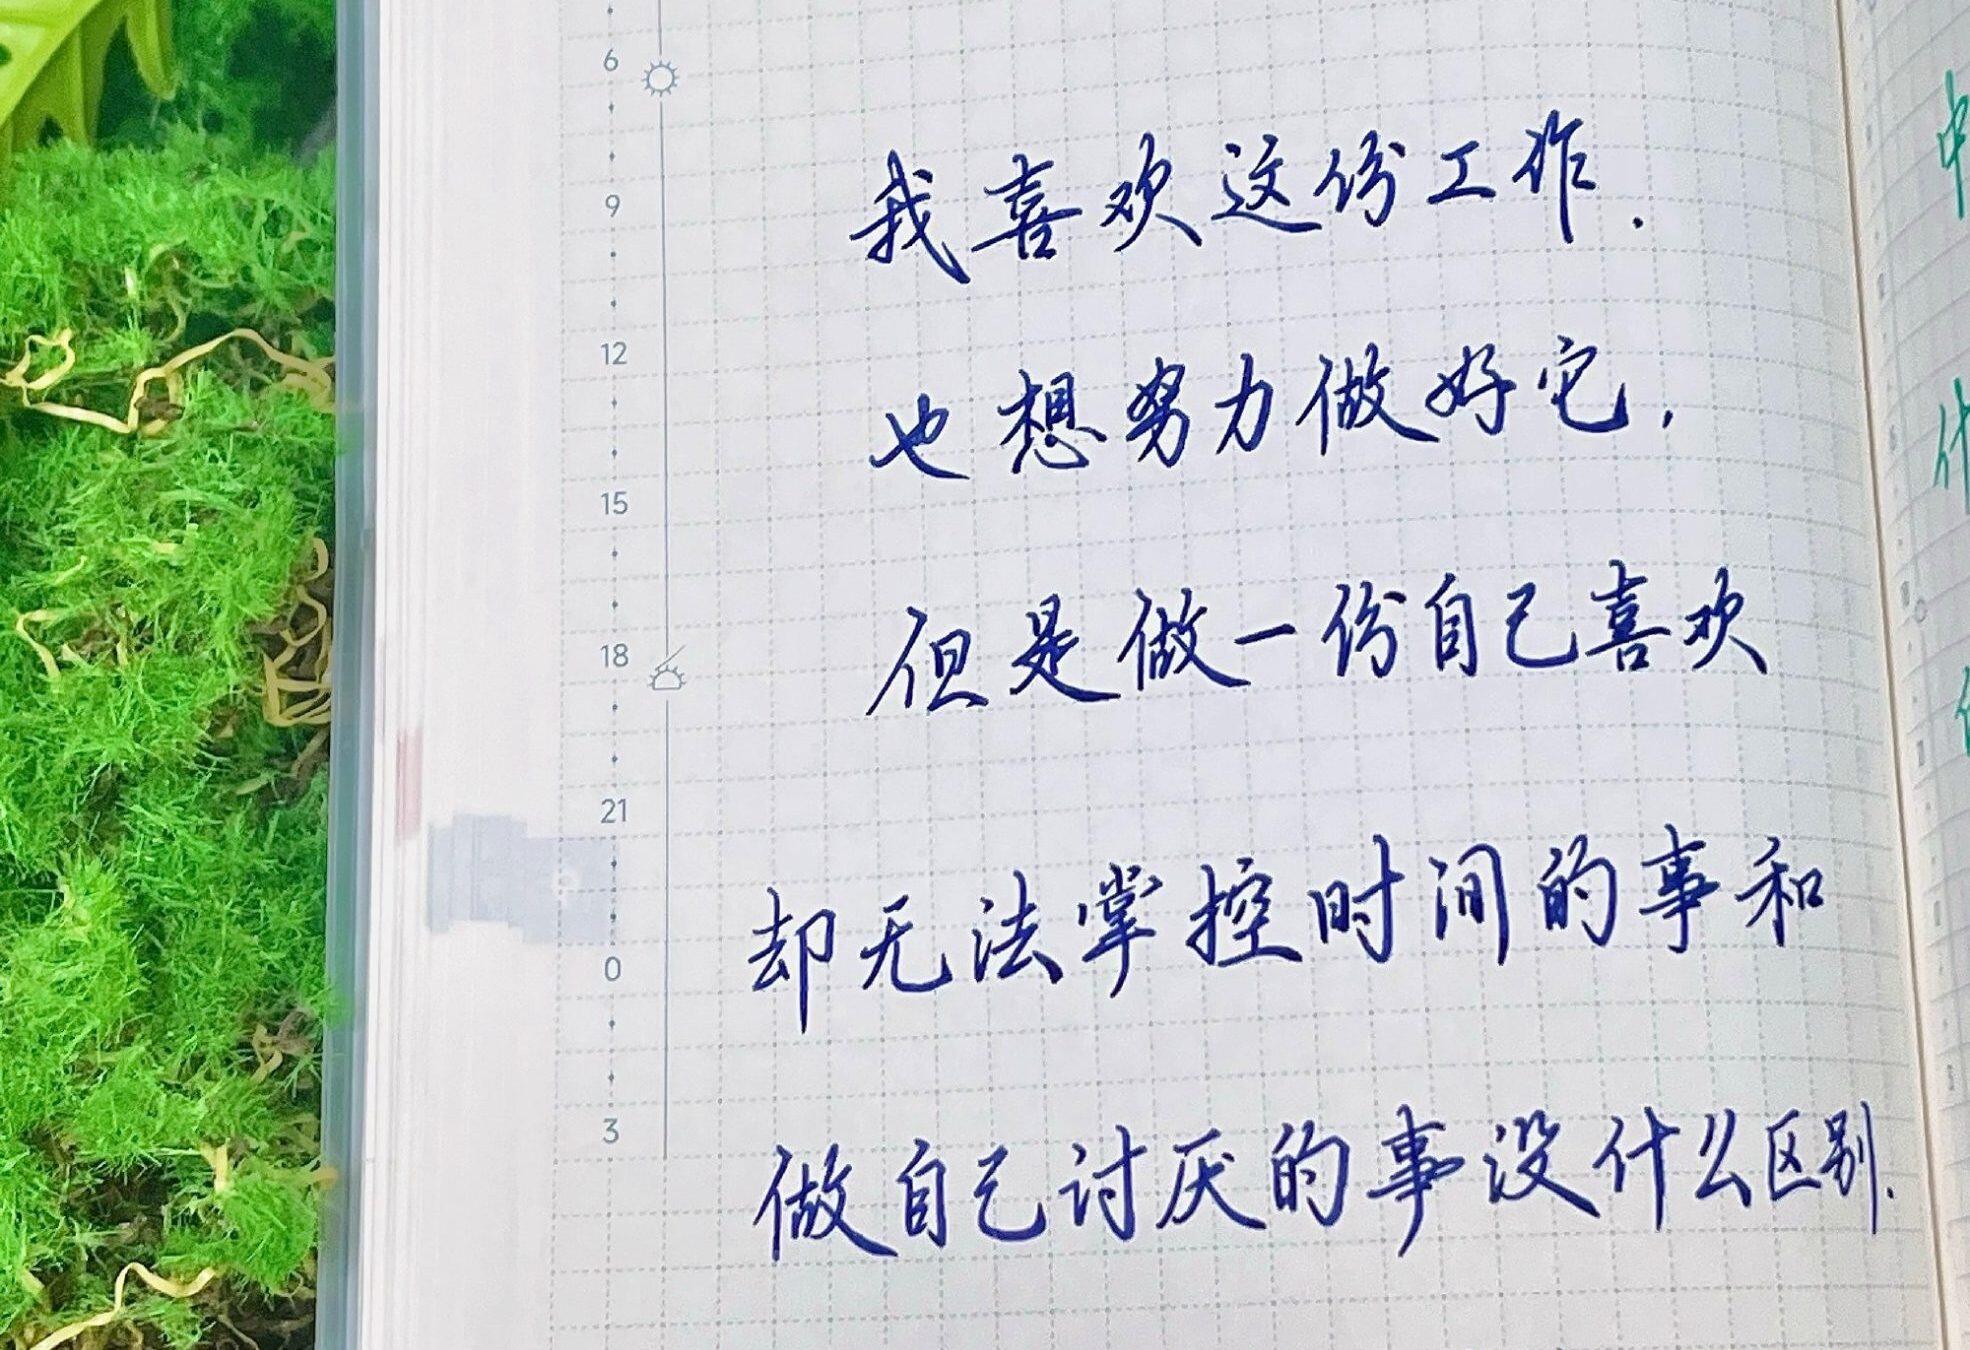 6
9
12
15
18
21
0
3
我喜欢这份工作.
也想努力做好它,
但是做一份自己喜欢
却无法掌控时间的事和
做自己讨厌的事没什么区别.
中
什